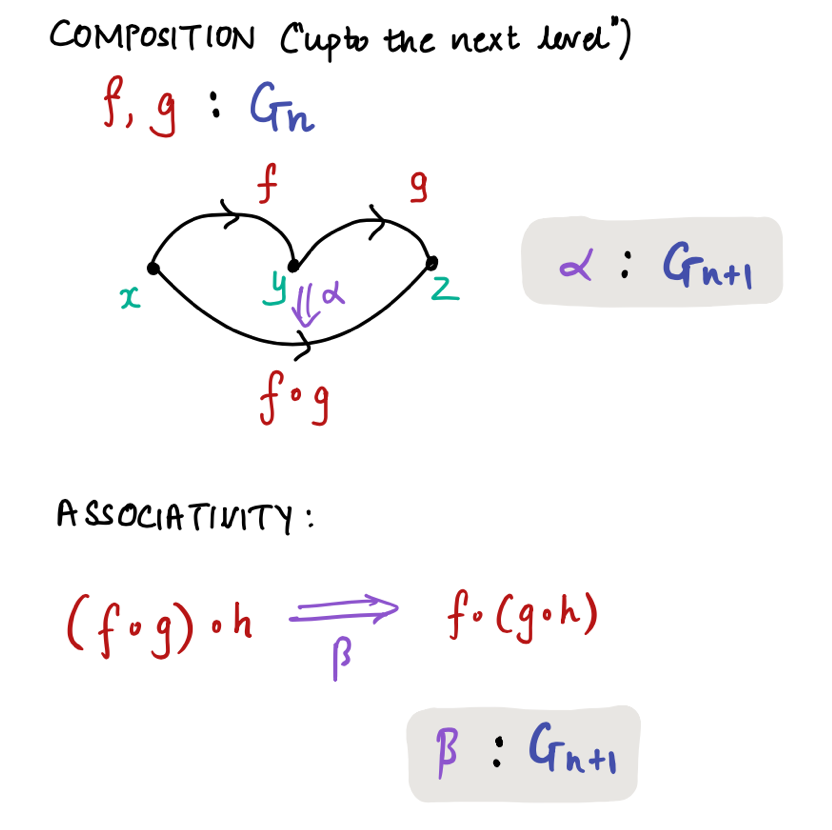 COMPOSITION ("upto the next level")
f, g : Gn
f g
x y α z
α : Gn+1
f∘g
ASSOCIATIVITY:
(f∘g)∘h ⟹ f∘(g∘h)
β
β : Gn+1